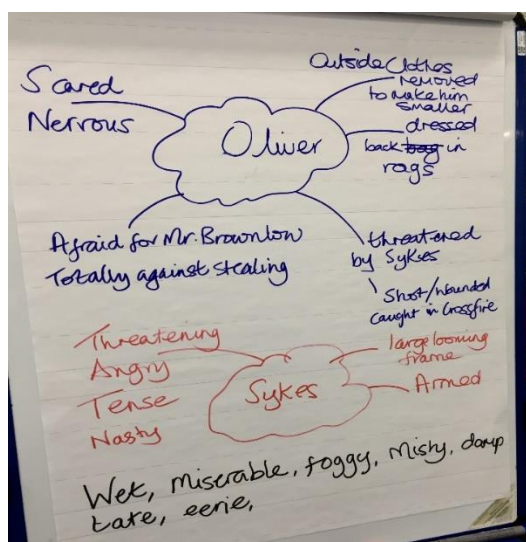 Scared
Nervous
Oliver
Outside Clothes
removed
to make him
smaller
dressed
back bag in
rags
Afraid for Mr. Brownlow
Totally against stealing
threatened
by Sykes
Shot/wounded
caught in crossfire
Threatening
Angry
Tense
Nasty
Sykes
large looming
frame
Armed
Wet, miserable, foggy, Misty, damp
Late, eerie,